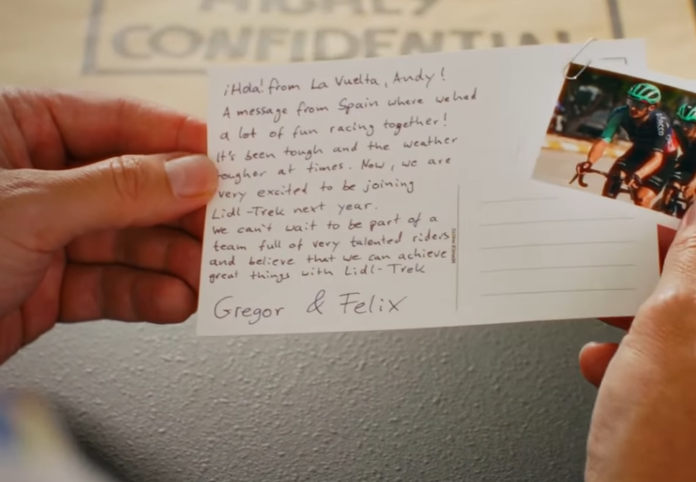 HIGHLY
CONFIDENTIAL
¡Hola! from La Vuelta, Andy!
A message from Spain where we had
a lot of fun racing together!
It's been tough and the weather
tougher at times. Now, we are
very excited to be joining
Lidl-Trek next year.
We can't wait to be part of a
team full of very talented riders
and believe that we can achieve
great things with Lidl-Trek
Gregor & Felix